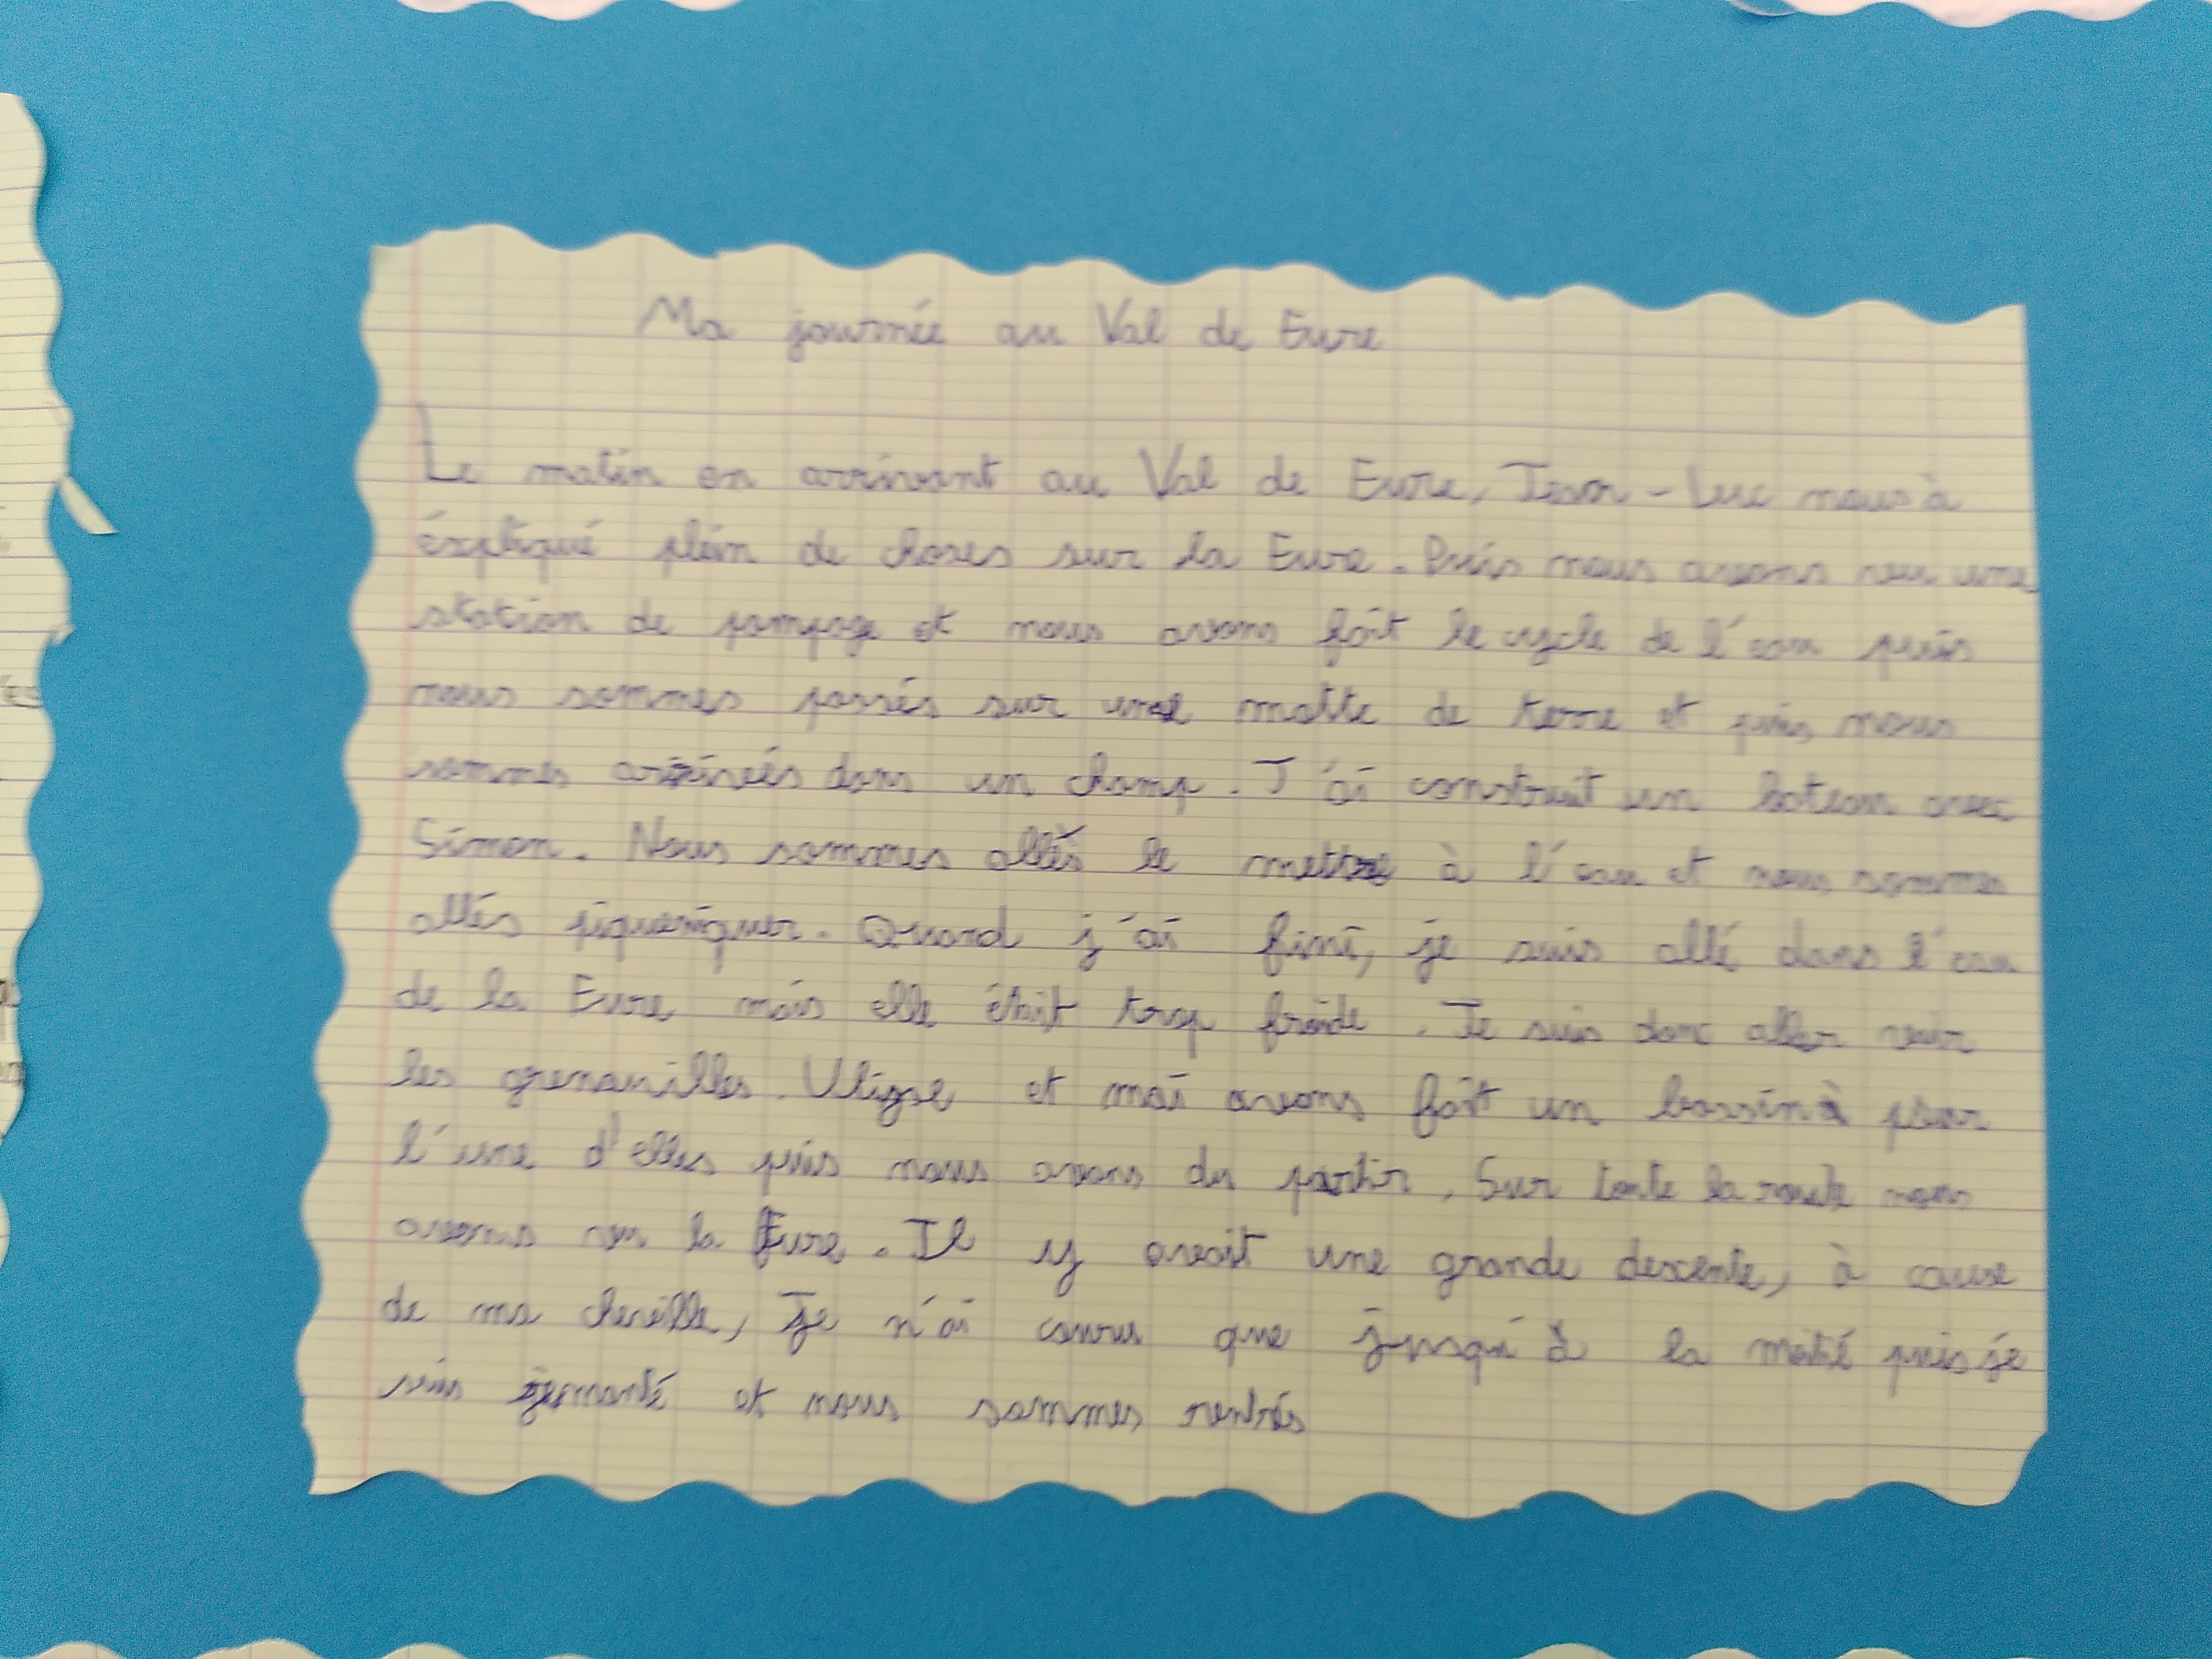 Ma journée au Val de Eure
Le matin en arrivant au Val de Eure, Jean-Luc nous à
éxpliqué plein de choses sur la Eure. Puis nous avons vu une
station de pompage et nous avons fait le cycle de l'eau puis
nous sommes passés sur une motte de terre et puis nous
sommes arrivés dans un champ. J'ai construit un bateau avec
Simon. Nous sommes allés le mettre à l'eau et nous sommes
allés piqueniquer. Quand j'ai fini, je suis allé dans l'eau
de la Eure mais elle était trop froide. Je suis donc aller voir
les grenouilles. Ulysse et moi avons fait un bassin pour
l'une d'elles puis nous avons du partir. Sur toute la route nous
avons vu la Eure. Il y avait une grande descente, à cause
de ma cheville, je n'ai couru que jusqu'à la moitié puis je
suis remonté et nous sommes rentrés